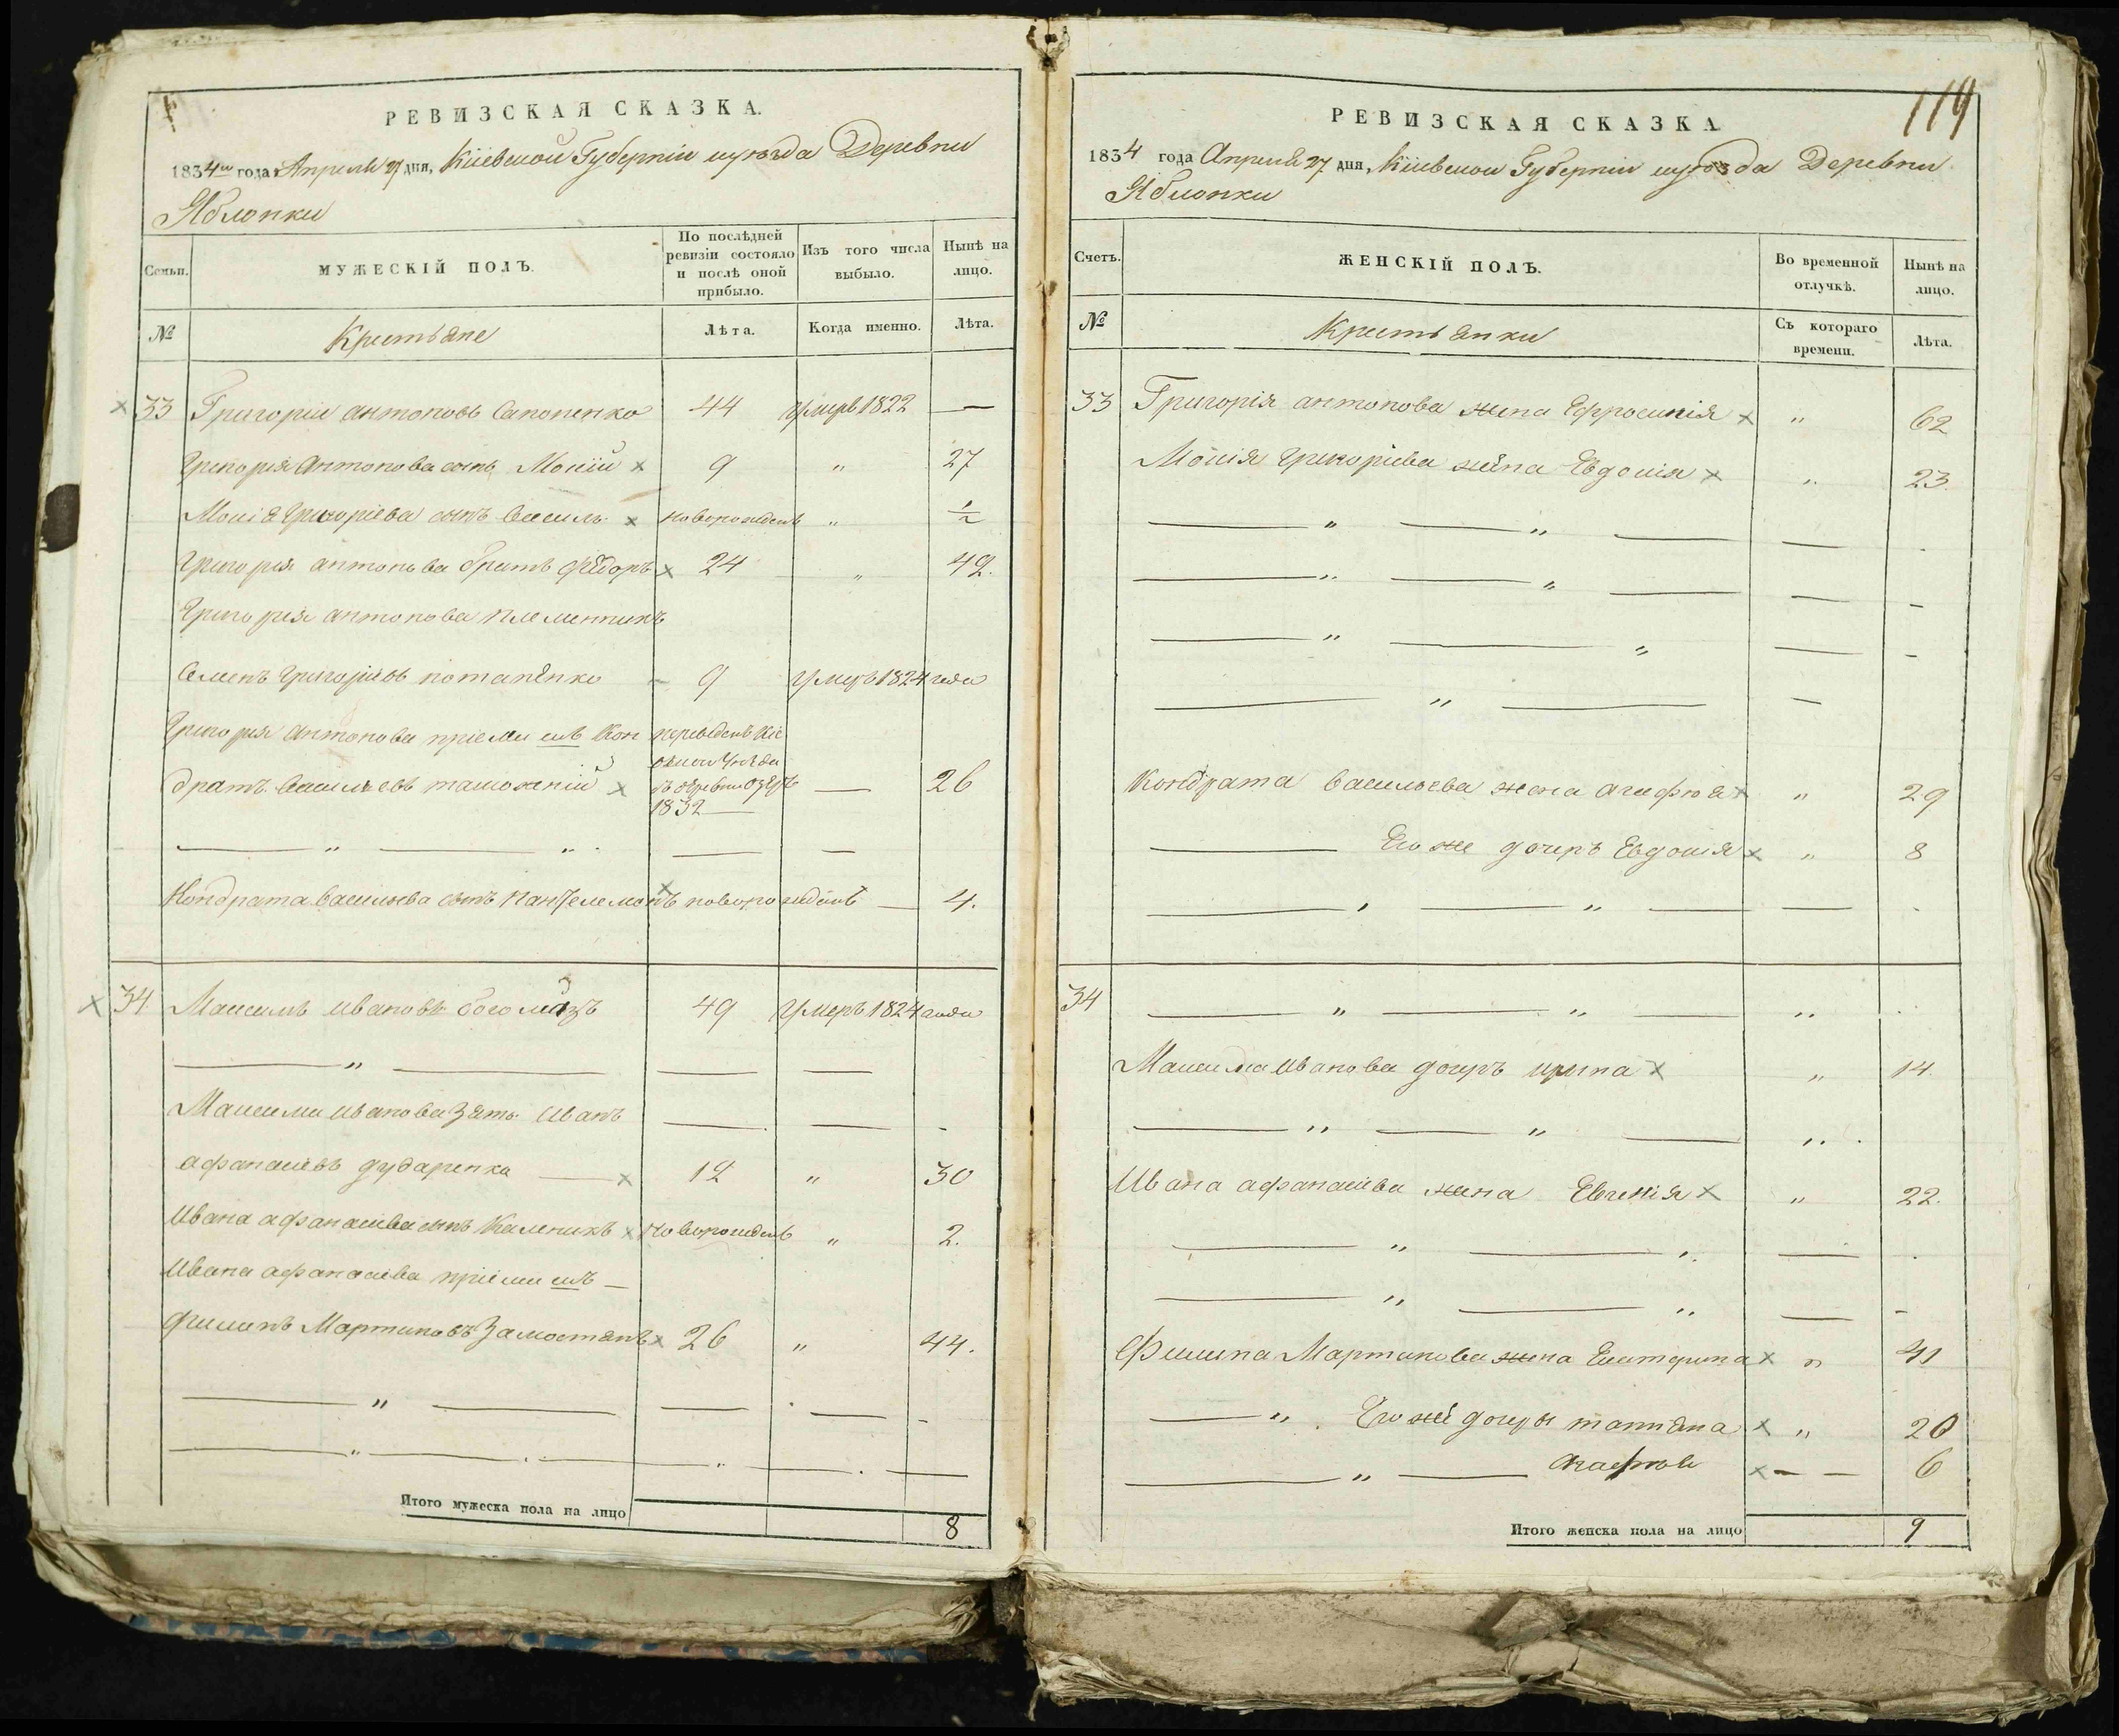 РЕВИЗСКАЯ СКАЗКА.
1834го года Апреля 27 дня, Кіевской Губерніи и уѣзда Деревни
Яблонки
Семьи.
МУЖЕСКІЙ ПОЛЪ.
По послѣдней ревизіи состояло и послѣ оной прибыло.
Изъ того числа выбыло.
Нынѣ на лицо.
№
Крестьяне
Лѣта.
Когда именно.
Лѣта.
33 Григорій антоновъ Сапоненко 44 Умеръ 1822 —
Григорія Антонова сынъ Мосій х 9 " 27
Мосія Григоріева сынъ Василь х новорожденъ " ½
Григорія антонова братъ Фёдоръ х 24 " 42.
Григорія антонова племянникъ
Семенъ Григоріевъ потапенко — 9 Умеръ 1824 года
Григорія Антонова пріемышъ Кон переведенъ Кіе
вской Уѣзда
дратъ Васильевъ х въ деревни — 26
1832
Кондрата Васильева сынъ Пантелемонъ х новорожденъ — 4.
х 34 Максимъ Ивановъ богомазъ 49 Умеръ 1824 года
Максима Иванова Зять Иванъ
афанасіевъ дударенко — х 12 " 30
Ивана афанасіева сынъ Каленикъ х Новорожденъ " 2.
Ивана афанасіева пріемышъ —
Филипъ Мартиновъ Замостянъ х 26 " 44.
Итого мужеска пола на лицо 8
119
РЕВИЗСКАЯ СКАЗКА
1834 года Апреля 27 дня, Кіевской Губерніи и уѣзда Деревни
Яблонки
Счетъ.
ЖЕНСКІЙ ПОЛЪ.
Во временной отлучкѣ.
Нынѣ на лицо.
№
Крестьянки
Съ котораго времени.
Лѣта.
33 Григорія антонова жена Ефросинія х " 62
Мосія Григоріева жена Евдокія х " 23.
Кондрата Васильева жена агафія х " 29
Его же дочерь Евдокія х " 8
34
Максима Иванова дочерь ирина х " 14.
Ивана афанасіева жена Евгенія х " 22.
Филипа Мартинова жена Екатерина х " 41
Его же дочери татіяна х " 20
х — — 6
Итого женска пола на лицо 9